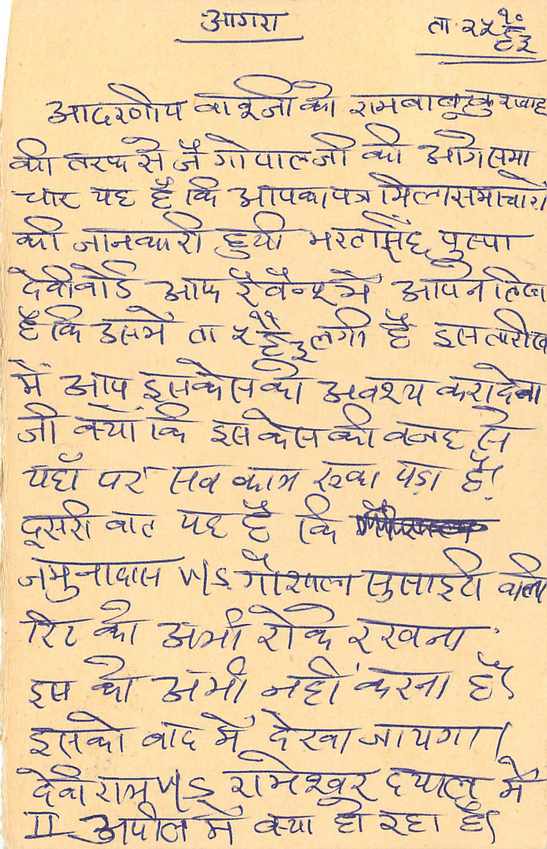 आगरा ता. २५ १०/८३
आदरणीय बाबूजी को रामबाबू कुशवाह
की तरफ से जै गोपालजी की आगे समा
चार यह है कि आपका पत्र मिला समाचारो
की जानकारी हुयी भरतसिंह पुस्पा
देवी बोर्ड आफ रैवैन्यू मै आपने लिखा
है कि उसमें ता ५ ११/८३ लगी है इस तारीख
में आप इस केस को अवश्य करा देना
जी क्यों कि इस केस की वजह से
यहाँ पर सब काम रुका पड़ा है।
दूसरी बात यह है कि
जमुनादास V/S गौशाला सुसाइटी वाली
रिट को अभी रोके रखना
इस को अभी नहीं करना है।
इसको बाद में देखा जायगा।
देवी राम V/S रामेश्वर दयाल में
II अपील में क्या हो रहा है।